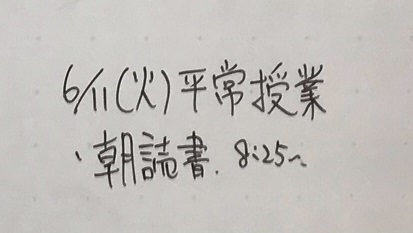 6/11(火)平常授業
・朝読書. 8:25~